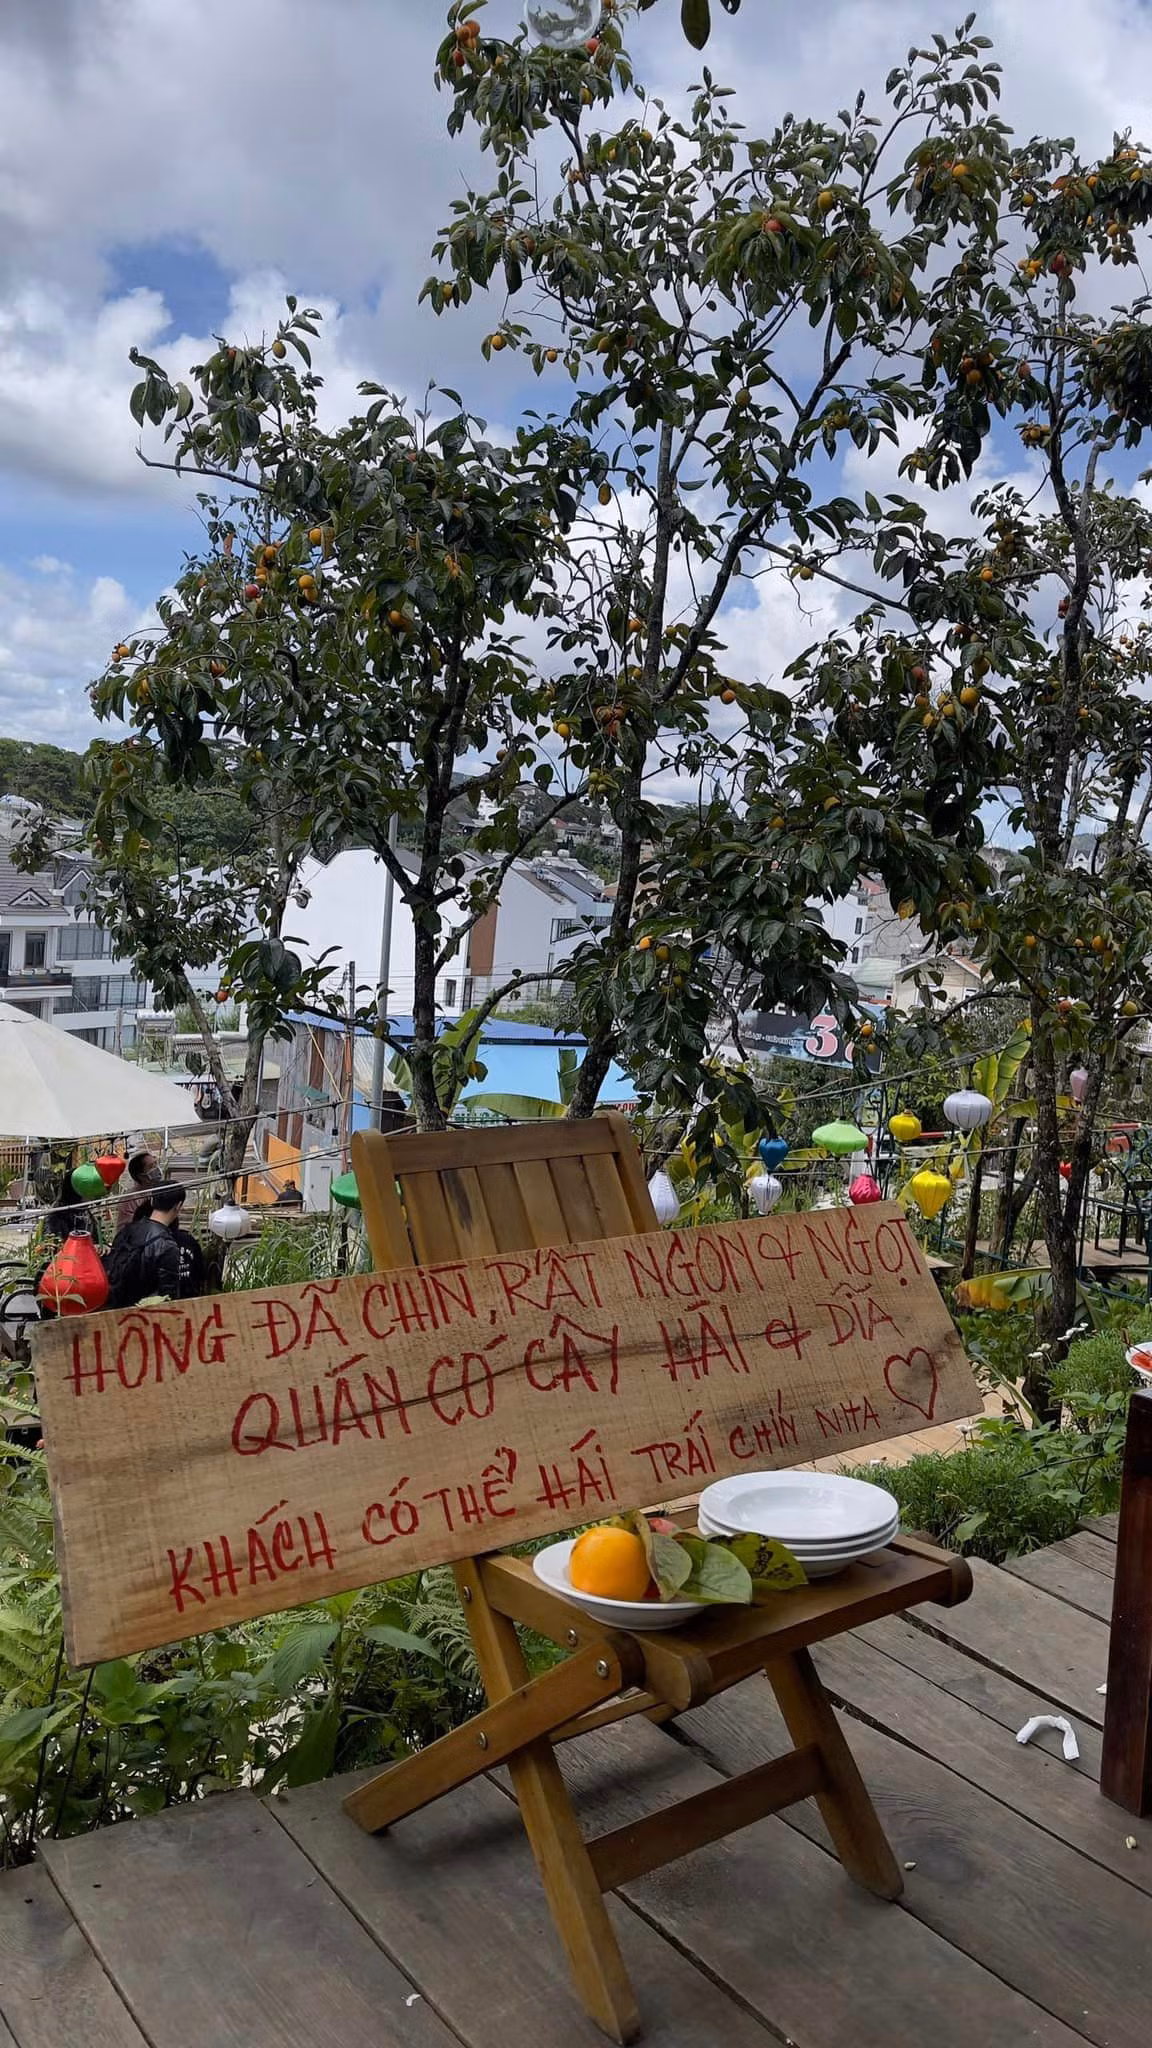 HỒNG ĐÃ CHÍN, RẤT NGON & NGỌT
QUÁN CÓ CÂY HÁI & DĨA
KHÁCH CÓ THỂ HÁI TRÁI CHÍN NHA
3